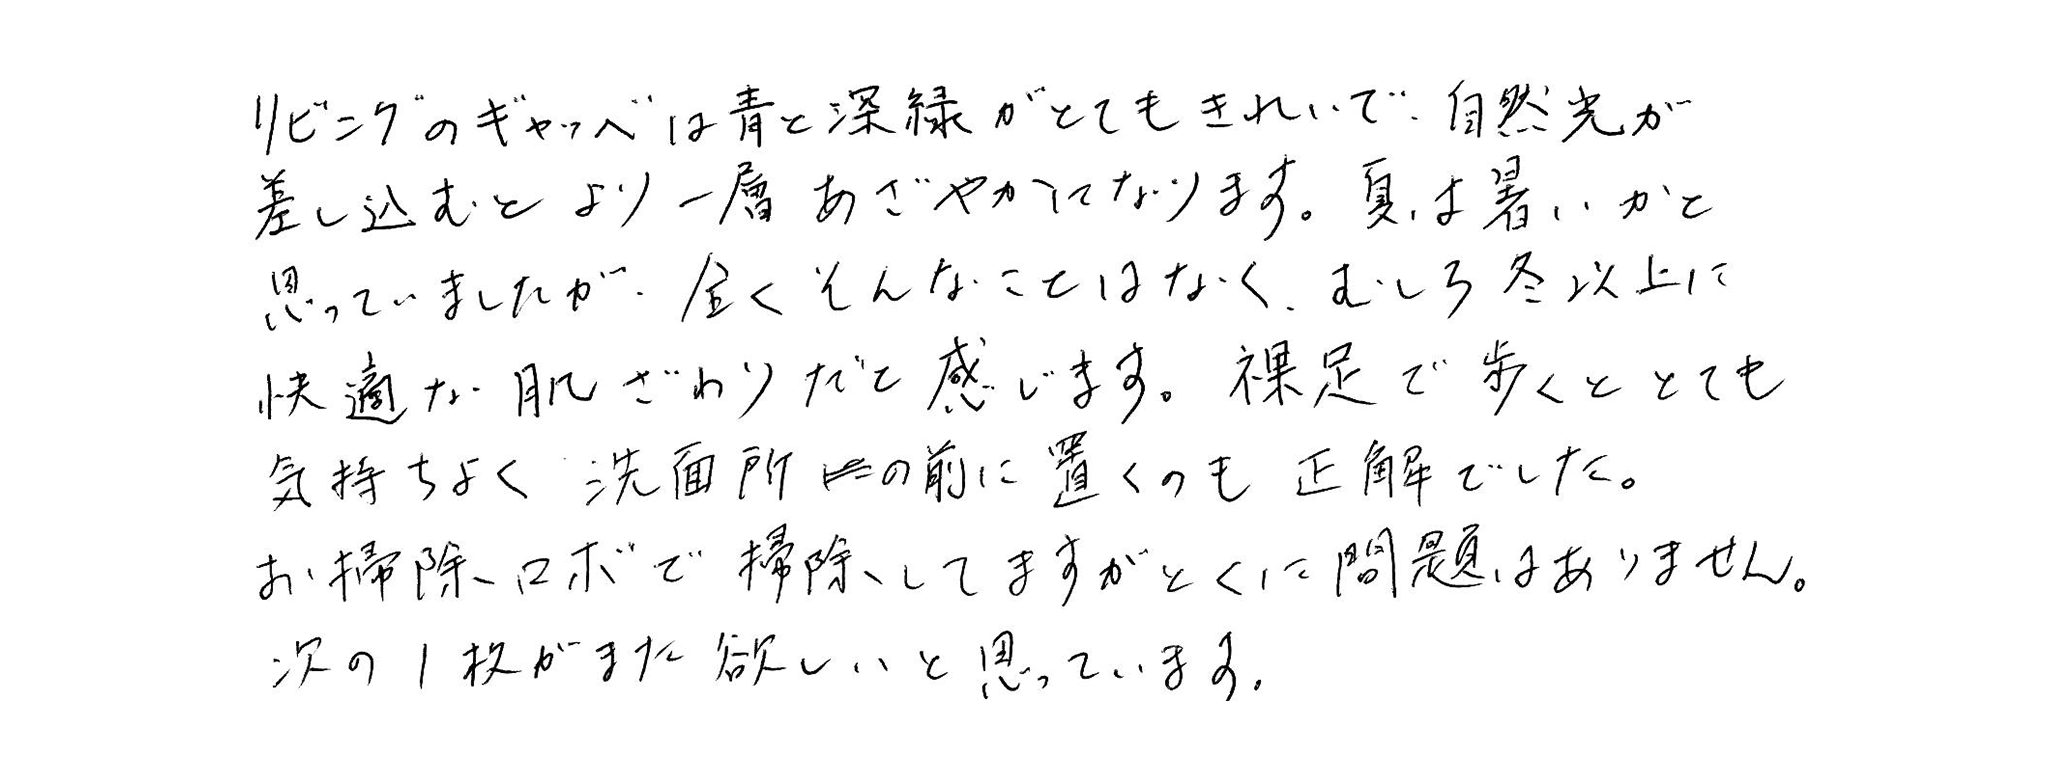 リビングのギャッベは青と深緑がとてもきれいで、自然光が
差し込むとより一層あざやかになります。夏は暑いかと
思っていましたが、全くそんなことはなく、むしろ冬以上に
快適な肌ざわりだと感じます。裸足で歩くととても
気持ちよく洗面所の前に置くのも正解でした。
お掃除ロボで掃除してますがとくに問題はありません。
次の1枚がまた欲しいと思っています。